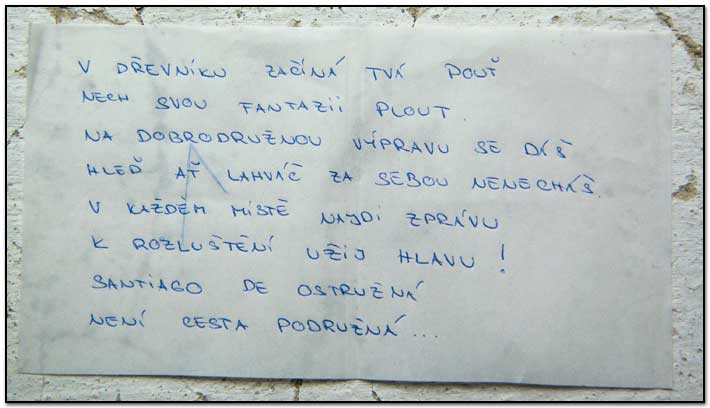 V DŘEVNÍKU ZAČÍNÁ TVÁ POUŤ
NECH SVOU FANTAZII PLOUT.
NA DOBRODRUŽNOU VÝPRAVU SE DÁŠ
HLEĎ AŤ LAHVÁČ ZA SEBOU NENECHÁŠ.
V KAŽDÉM MÍSTĚ NAJDI ZPRÁVU
K ROZLUŠTĚNÍ UŽIJ HLAVU!
SANTIAGO DE OSTRUŽNÁ
NENÍ CESTA PODRUŽNÁ...